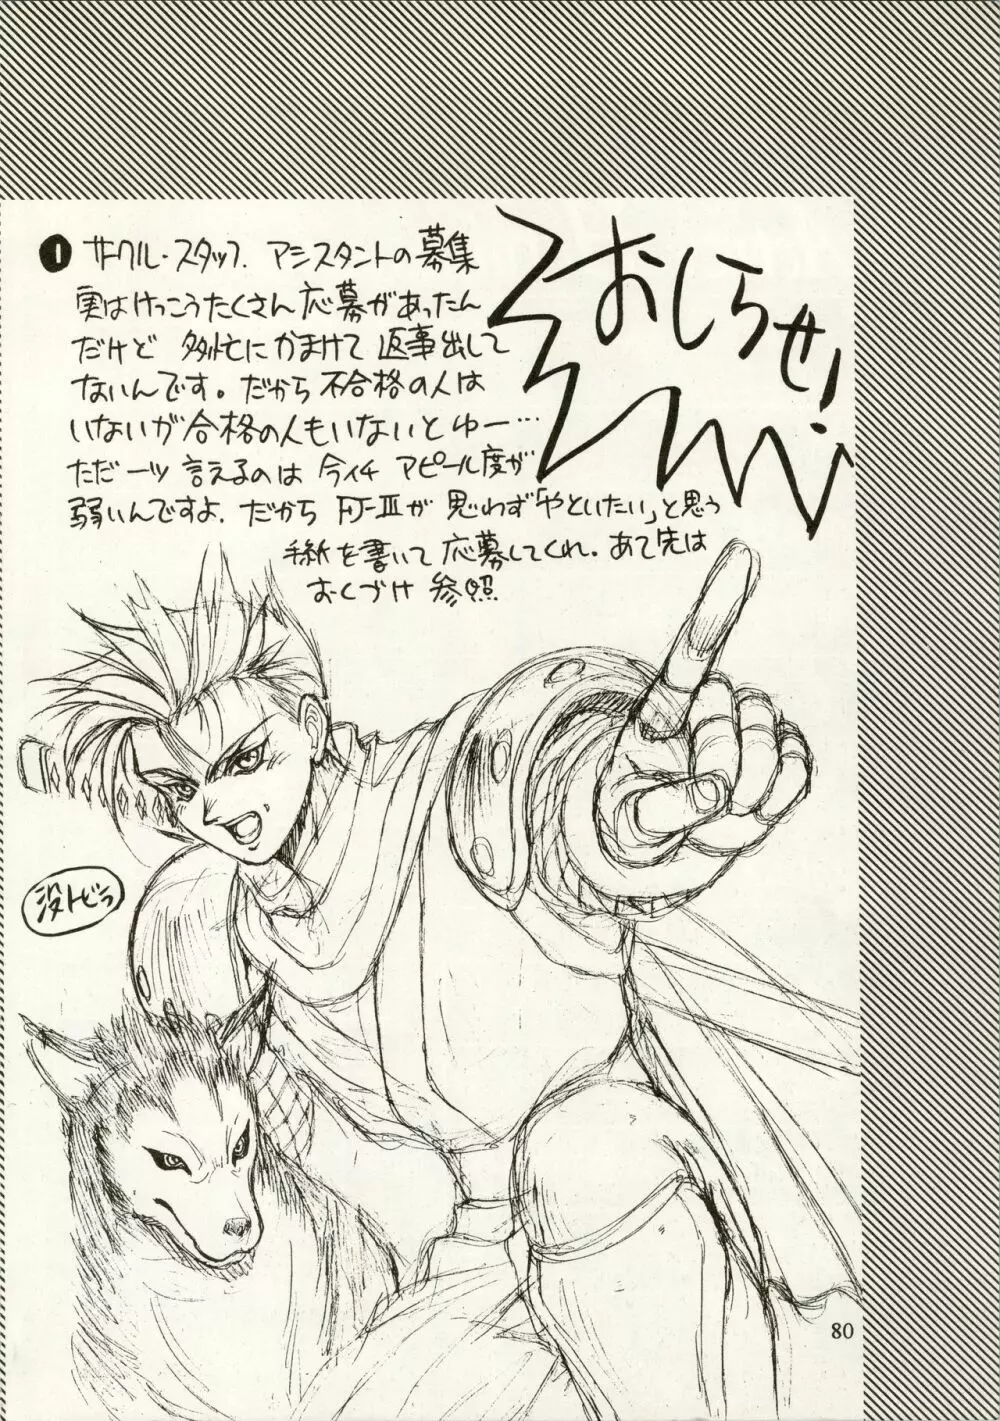 おしらせ!
❶ サークル・スタッフ、アシスタントの募集
実はけっこうたくさん応募があったん
だけど 多忙にかまけて 返事出して
ないんです。だから 不合格の人は
いないが合格の人もいないとゆー…
ただ一ツ 言えるのは 今イチ アピール度が
弱いんですよ。だから FJ-Ⅲが 思わず「やといたい」と思う
手紙を書いて 応募してくれ。あて先は
おくづけ 参照
没トビラ
80